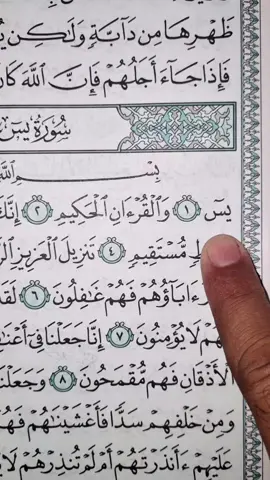 ظَهْرِهَا مِن دَآبَّةٍ وَلَٰكِن
فَإِذَا جَآءَ أَجَلُهُمْ فَإِنَّ ٱللَّهَ كَانَ
سُورَةُ يسٓ
بِسْمِ ٱللَّهِ
يسٓ ١ وَٱلْقُرْءَانِ ٱلْحَكِيمِ ٢ إِنَّكَ
مُّسْتَقِيمٍ ٤ تَنزِيلَ ٱلْعَزِيزِ
ءَابَآؤُهُمْ فَهُمْ غَٰفِلُونَ ٦ لَقَدْ
فَهُمْ لَا يُؤْمِنُونَ ٧ إِنَّا جَعَلْنَا فِىٓ
ٱلْأَذْقَانِ فَهُم مُّقْمَحُونَ ٨ وَجَعَلْنَا
وَمِنْ خَلْفِهِمْ سَدًّا فَأَغْشَيْنَٰهُمْ
عَلَيْهِمْ ءَأَنذَرْتَهُمْ أَمْ لَمْ تُنذِرْهُمْ لَا